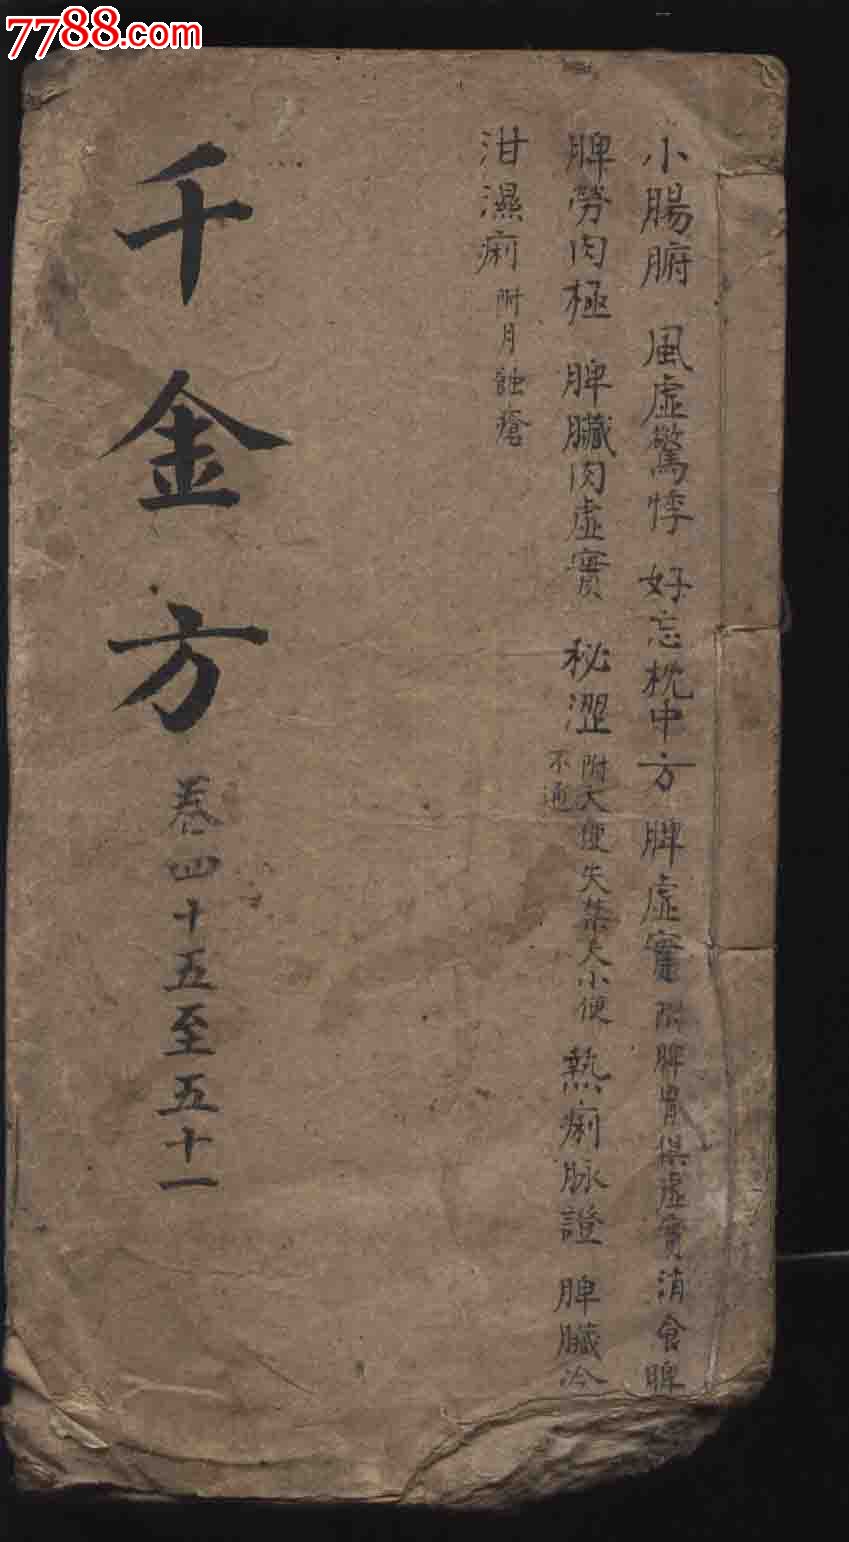 7788.com
小腸腑 風虛驚悸 好忘枕中方 脾虛實 附脾胃俱虛實消食脾
脾勞肉極 脾臟肉虛實 秘澀 附大便失禁大小便
不通
熱痢脉證 脾臟冷
泔濕痢 附月蝕瘡
千金方
卷四十五至五十一